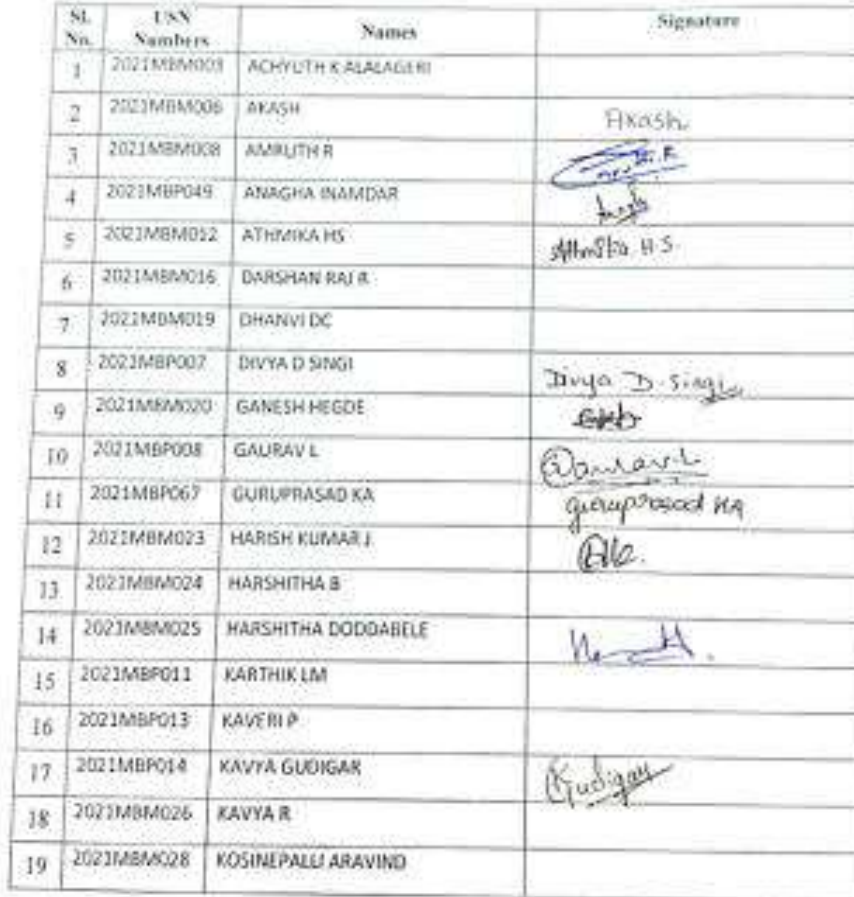 Sl. No. USN Numbers Names Signature
1 2021MBM003 ACHYUTH K ALALAGERI
2 2021MBM006 AKASH Akash
3 2021MBM008 AMRUTH R
4 2021MBP049 ANAGHA INAMDAR
5 2021MBM012 ATHMIKA HS Athmika H.S.
6 2021MBM016 DARSHAN RAJ R
7 2021MBM019 DHANVI DC
8 2021MBP007 DIVYA D SINGI Divya D. Singi
9 2021MBM020 GANESH HEGDE
10 2021MBP008 GAURAV L Gaurav.L
11 2021MBP067 GURUPRASAD KA guruprasad KA
12 2021MBM023 HARISH KUMAR J
13 2021MBM024 HARSHITHA B
14 2021MBM025 HARSHITHA DODDABELE
15 2021MBP011 KARTHIK LM
16 2021MBP013 KAVERI P
17 2021MBP014 KAVYA GUDIGAR KGudigar
18 2021MBM026 KAVYA R
19 2021MBM028 KOSINEPALLI ARAVIND